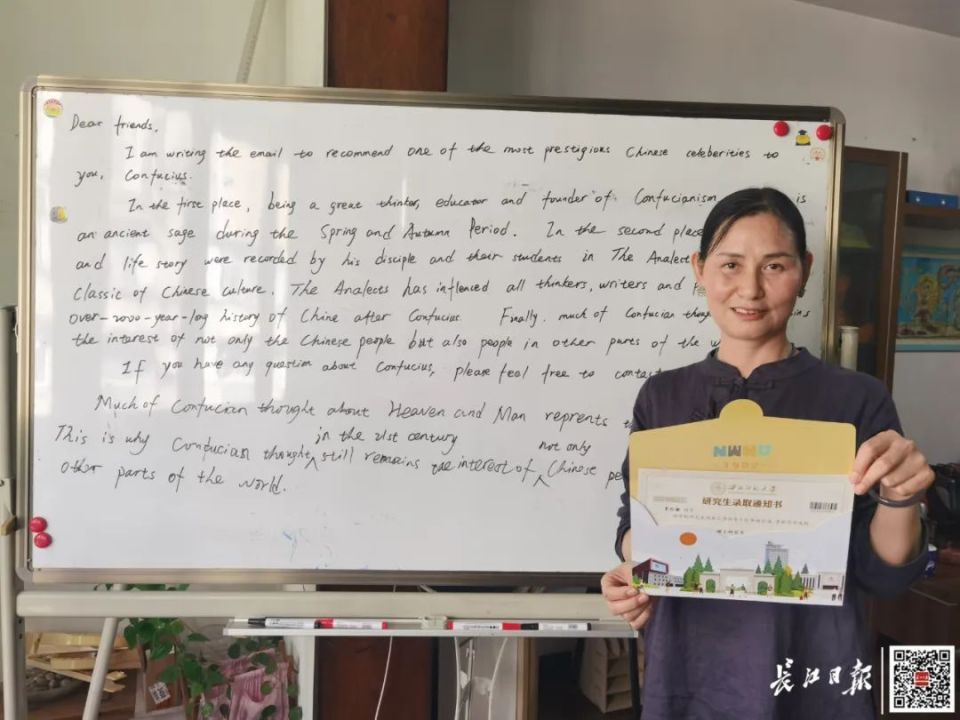 Dear friends,
I am writing the email to recommend one of the most prestigious Chinese celeberities to
you, Confucius.
In the first place, being a great thinker, educator and founder of Confucianism is
an ancient sage during the Spring and Autumn Period. In the second place
and life story were recorded by his disciple and their students in The Analect
Classic of Chinese culture. The Analects has inflenced all thinkers, writers and
over-2000-year-log history of Chine after Confucius. Finally, much of Confucian thoug
the interest of not only the Chinese people but also people in other parts of the w
If you have any question about Confucius, please feel free to contact
Much of Confucian thought about Heaven and Man reprents
in the 21st century not only
This is why Confucian thought still remains the interest of Chinese pe
other parts of the world.
NWNU
1902
西北师范大学
研究生录取通知书
长江日报